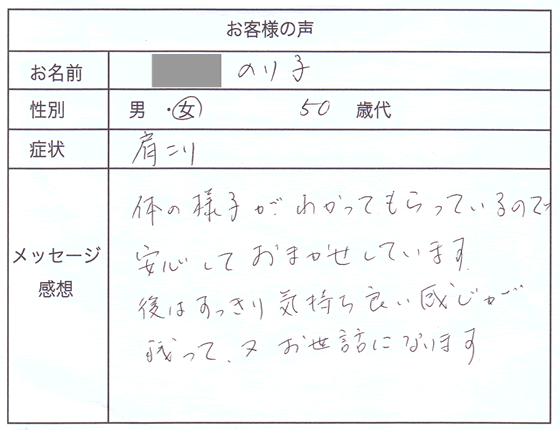 お客様の声
お名前 のり子
性別 男・女 50 歳代
症状 肩こり
メッセージ
感想
体の様子がわかってもらっているので
安心しておまかせしています。
後はすっきり気持ち良い感じが
残って、又お世話になります